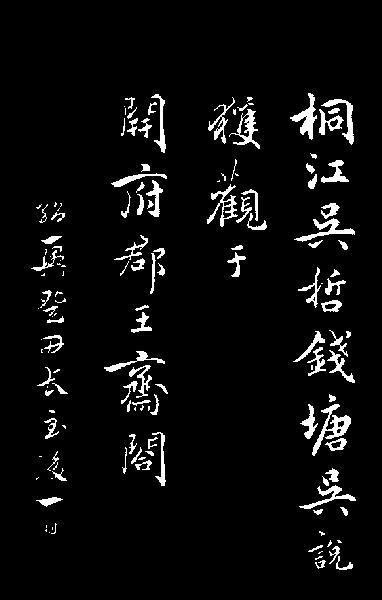 桐江吳哲錢塘吳說
獲觀于
開府郡王齋閣
紹興癸丑長至後一日